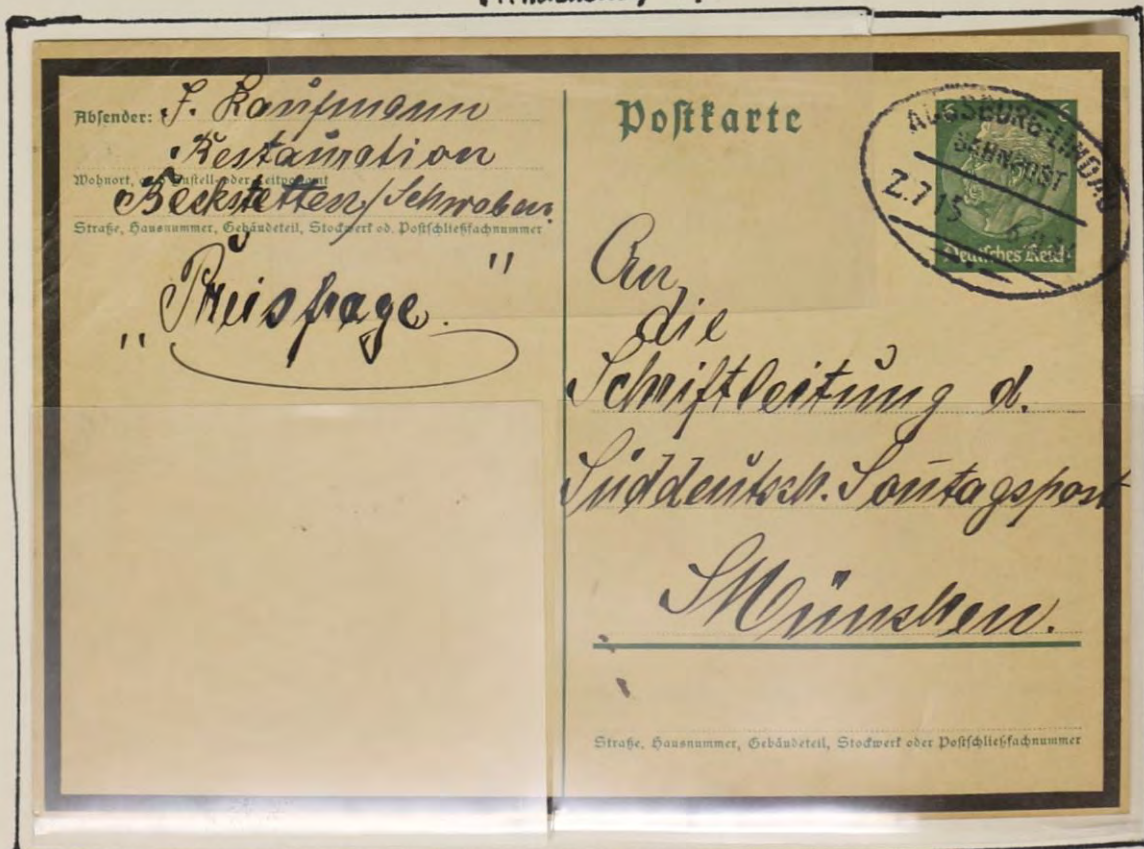 Absender: J. Kaufmann
Restauration
Wohnort, auch Zustell- oder Leitpostamt
Beckstetten/Schwaben.
Straße, Hausnummer, Gebäudeteil, Stockwerk od. Postschließfachnummer
„Preisfrage."
Postkarte
6 6
Deutsches Reich
AUGSBURG-LINDAU
BAHNPOST
Z.715
An
die
Schriftleitung d.
Süddeutsch. Sontagspost
München.
Straße, Hausnummer, Gebäudeteil, Stockwerk oder Postschließfachnummer